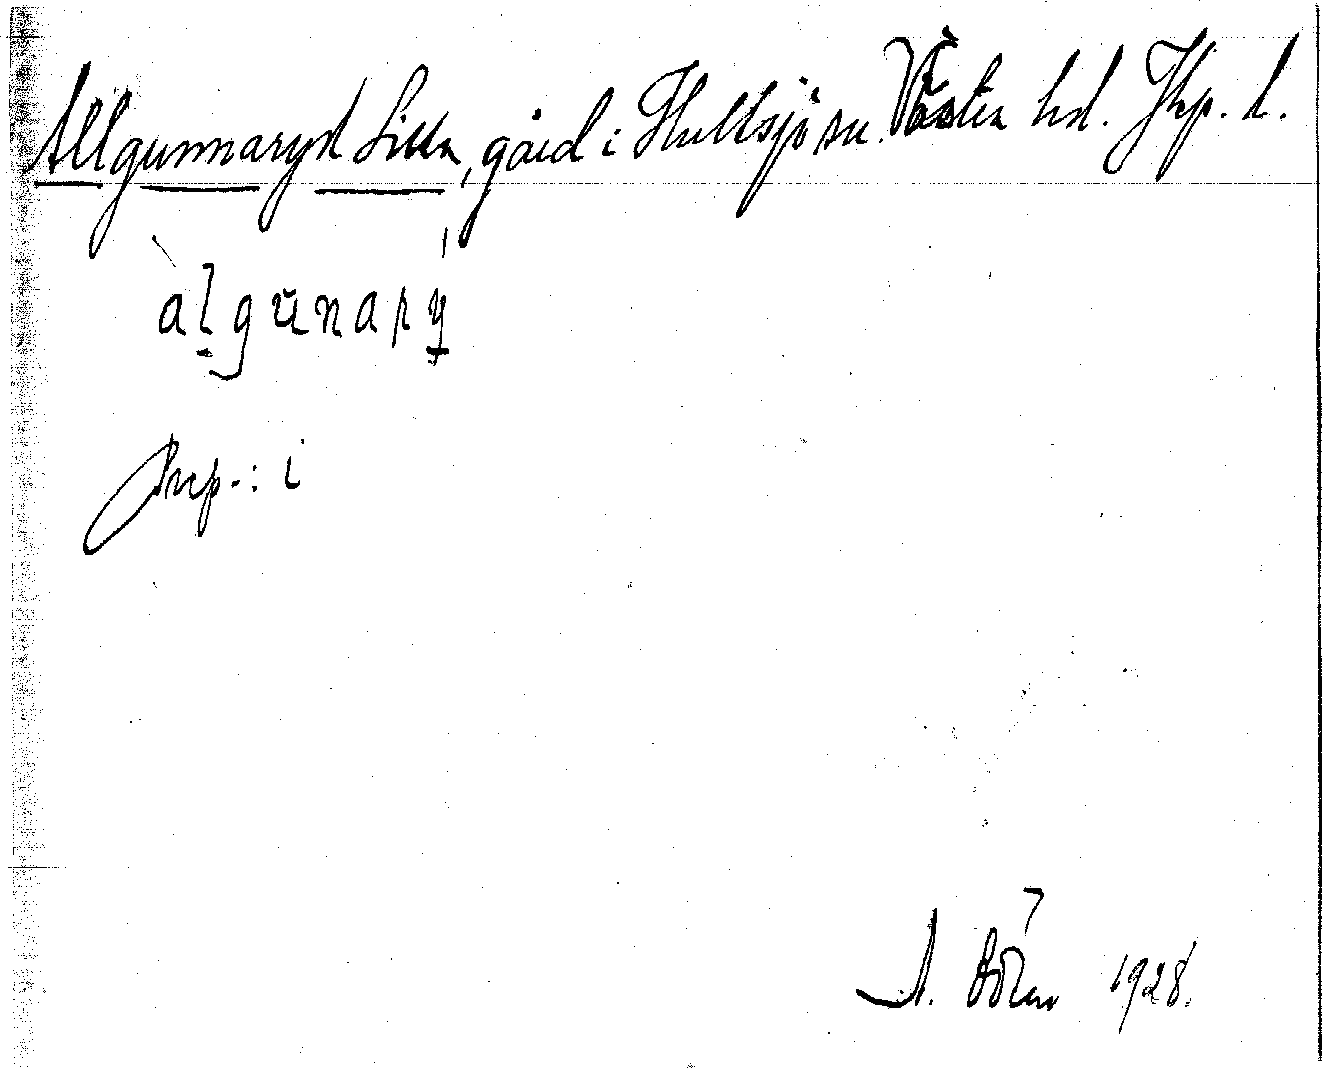 Allgunnaryd Lilla, gård i Hultsjö sn. Västra hd. Jkp. l.
àlgunarý
Prep.: i
A. 1928.